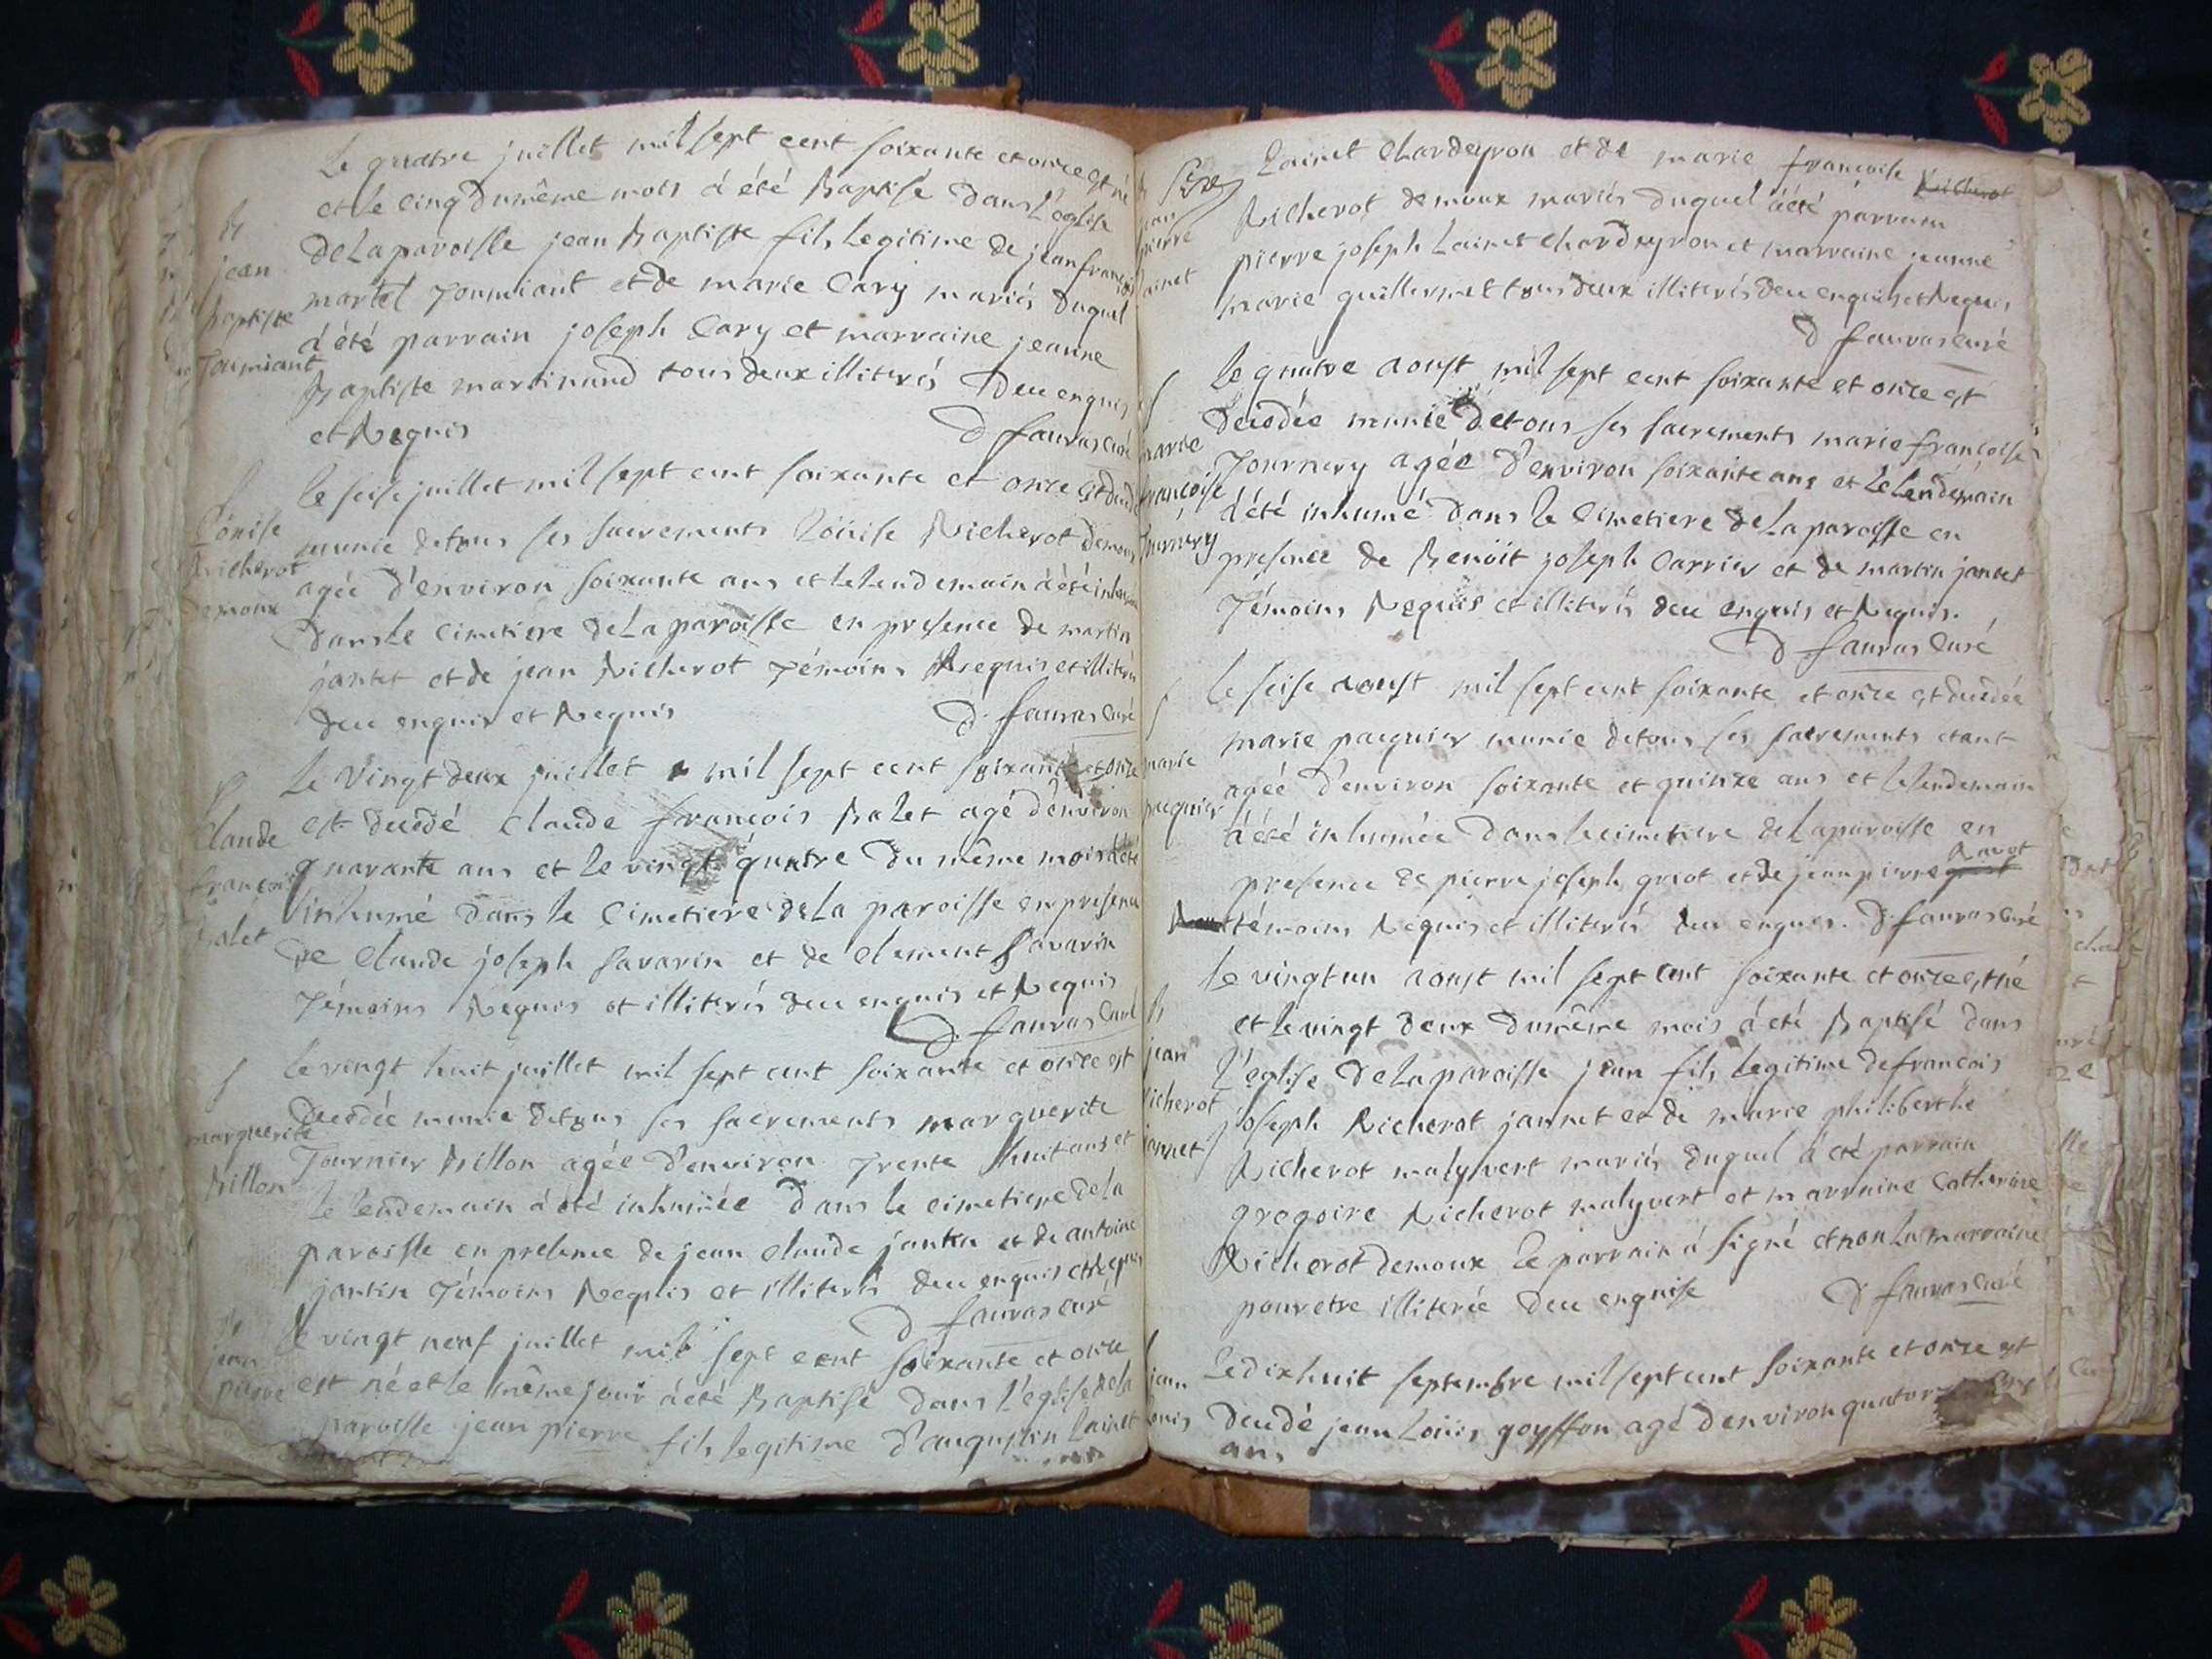 Le quatre juillet mil sept cent soixante et onze est né
et le cinq du même mois à été Baptisé dans l'église
de La paroisse jean Baptiste fils legitime de jean francois
martel Joumiant et de marie Cary mariés duquel
à été parrain joseph Cary et marraine jeanne
Baptiste martinand tous deux illiterés Deu enquis
et Requis
D favras curé
B
jean
baptiste
Joumiant
le seise juillet mil sept cent soixante et onze est decedé
munie de tous ses sacrements Loüise Richerot demoux
agée d'environ soixante ans et le lendemain à été inhumé
dans le Cimetiere de La paroisse en presence de martin
jantet et de jean Richerot Témoins Requis et illiterés
deu enquis et Requis
D favras curé
S
Loüise
Richerot
demoux
le vingt deux juillet mil sept cent soixante et onze
est decedé Claude françois Balet agé d'environ
quarante ans et le vingt quatre du même mois à été
inhumé dans le Cimetiere de La paroisse en presence
de Claude joseph Savarin et de Clement Savarin
Témoins Requis et illiterés deu enquis et Requis
D favras Curé
S
Claude
françois
balet
le vingt huit juillet mil sept cent soixante et onze est
decedée munie de tous ses sacrements marguerite
Tournier Billon agée d'environ Trente huit ans et
le lendemain à été inhumée dans le cimetiere de la
paroisse en presence de jean Claude jantin et de antoine
jantin Témoins Requis et illiterés deu enquis et Requis
D favras curé
S
marguerite
Billon
le vingt neuf juillet mil sept cent soixante et onze
est né et le même jour à été Baptisé dans l'église de la
paroisse jean pierre fils legitime d'augustin Lainet
B
jean
pierre
Lainet Chardeyron et de marie françoise
Richerot demoux mariés duquel à été parrain
pierre joseph Lainet Chardeyron et marraine jeanne
marie guillermet tous deux illiterés deu enquis et Requis
D favras curé
jean
pierre
ainet
le quatre aoust mil sept cent soixante et onze est
decedée munie de tous ses sacrements marie françoise
Journery agée d'environ soixante ans et le lendemain
à été inhumé dans le Cimetiere de La paroisse en
presence de Benoit joseph Carrier et de martin jantet
Témoins Requis et illiterés deu enquis et Requis.
D favras Curé
S
marie
françoise
Journery
le seise aoust mil sept cent soixante et onze est decedée
marie pacquier munie de tous ses sacrements etant
agée d'environ soixante et quinze ans et le lendemain
à été inhumée dans le cimetiere de La paroisse en
presence de pierre joseph griot et de jean pierre Ravot
témoins Requis et illiterés deu enquis. D favras curé
S
marie
pacquier
le vingt un aoust mil sept cent soixante et onze est né
et le vingt deux du même mois à été Baptisé dans
l'église de La paroisse jean fils legitime de francois
joseph Richerot jannet et de marie philiberthe
Richerot malyvert mariés duquel à été parrain
gregoire Richerot malyvert et marraine Catherine
Richerot demoux le parrain à signé et non La marraine
pour etre illiterée deu enquise
D favras Curé
B
jean
richerot
jannet
Le dix huit septembre mil sept cent soixante et onze est
decedé jean Loüis goyffon agé d'environ quatorze
ans
jean
ouis